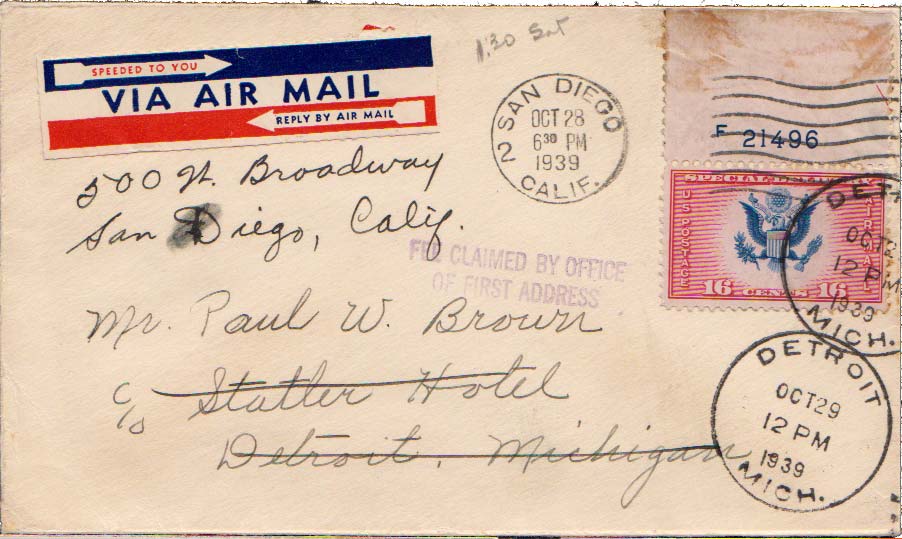 1:30 Sat
SPEEDED TO YOU
VIA AIR MAIL
REPLY BY AIR MAIL
SAN DIEGO
OCT 28
6 30 PM
1939
2
CALIF.
F 21496
500 W. Broadway
San Diego, Calif.
FEE CLAIMED BY OFFICE
OF FIRST ADDRESS
SPECIAL
U.S. POSTAGE
16 CENTS 16
DETR
OCT 2
12 PM
1939
MICH.
Mr. Paul W. Brown
c/o Statler Hotel
Detroit, Michigan
DETROIT
OCT 29
12 PM
1939
MICH.